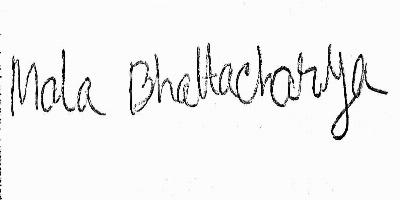 Mala Bhattacharya